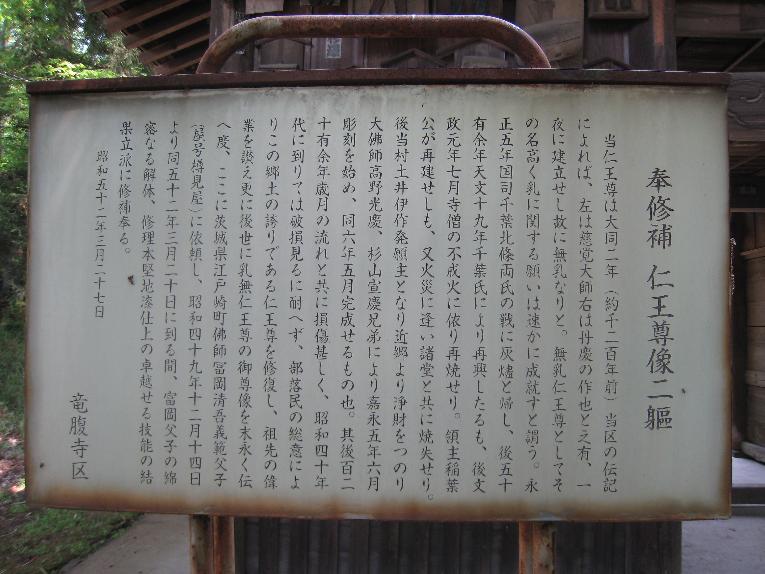 奉修補 仁王尊像二軀
当仁王尊は大同二年（約千二百年前）当区の伝記
によれば、左は慈覚大師右は丹慶の作也と之有、一
夜に建立せし故に無乳なりと。無乳仁王尊としてそ
の名高く乳に関する願いは速かに成就すと謂う。永
正五年国司千葉北條両氏の戦に灰燼と帰し、後五十
有余年天文十九年千葉氏により再興したるも、後文
政元年七月寺僧の不戒火に依り再焼せり。領主稲葉
公が再建せしも、又火災に逢い諸堂と共に焼失せり。
後当村土井伊作発願主となり近郷より浄財をつのり
大佛師高野光慶、杉山宣慶兄弟により嘉永五年六月
彫刻を始め、同六年五月完成せるもの也。其後百二
十有余年歳月の流れと共に損傷甚しく、昭和四十年
代に到りては破損見るに耐へず、部落民の総意によ
りこの郷土の誇りである仁王尊を修復し、祖先の偉
業を讃え更に後世に乳無仁王尊の御尊像を末永く伝
へ度、ここに茨城県江戸崎町佛師冨岡清吾義範父子
（號号樽見屋）に依頼し、昭和四十九年十二月十四日
より同五十二年三月二十日に到る間、富岡父子の綿
密なる解体、修理本堅地漆仕上の卓越せる技能の結
果立派に修補奉る。
昭和五十二年三月二十七日
竜腹寺区